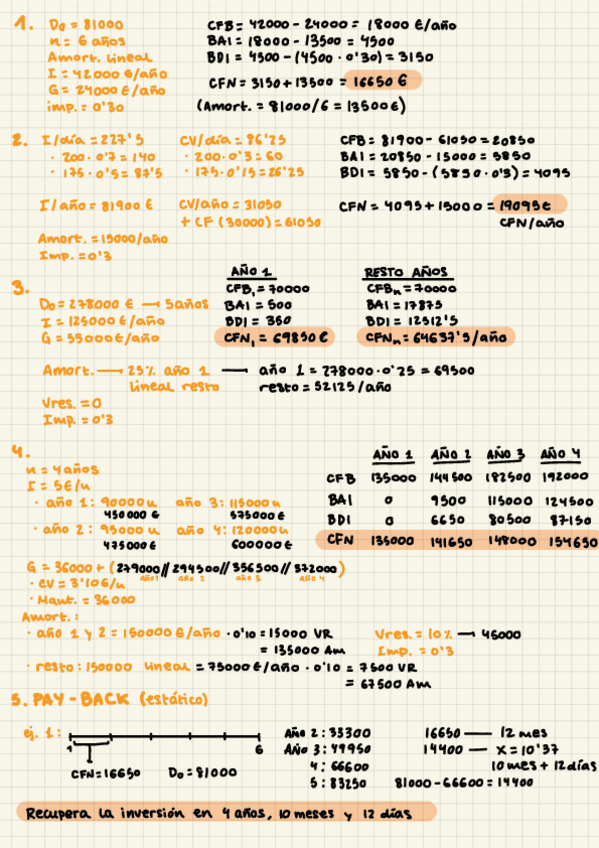 1. D₀ = 81000
n = 6 años
Amort. lineal
I = 42000 €/año
G = 24000 €/año
imp. = 0'30
CFB = 42000 - 24000 = 18000 €/año
BAI = 18000 - 13500 = 4500
BDI = 4500 - (4500 · 0'30) = 3150
CFN = 3150 + 13500 = 16650 €
(Amort. = 81000/6 = 13500€)
2. I/día = 227'5
· 200 · 0'7 = 140
· 175 · 0'5 = 87'5
CV/día = 86'25
· 200 · 0'3 = 60
· 175 · 0'15 = 26'25
CFB = 81900 - 61050 = 20850
BAI = 20850 - 15000 = 5850
BDI = 5850 - (5850 · 0'3) = 4095
I/año = 81900 €
CV/año = 31050
+ CF (30000) = 61050
CFN = 4095 + 15000 = 19095€
CFN/año
Amort. = 15000/año
Imp. = 0'3
3.
D₀ = 278000 € → 5años
I = 125000 €/año
G = 55000 €/año
AÑO 1
CFB₁ = 70000
BAI = 500
BDI = 350
CFN₁ = 69850 €
RESTO AÑOS
CFBₙ = 70000
BAI = 17875
BDI = 12512'5
CFNₙ = 64637'5/año
Amort. → 25% año 1 → año 1 = 278000 · 0'25 = 69500
lineal resto resto = 52125/año
Vres. = 0
Imp. = 0'3
4.
n = 4 años
I = 5€/u
· año 1: 90000u año 3: 115000u
450000 € 575000 €
· año 2: 95000u año 4: 120000u
475000 € 600000 €
AÑO 1 AÑO 2 AÑO 3 AÑO 4
CFB 135000 144500 182500 192000
BAI 0 9500 115000 124500
BDI 0 6650 80500 87150
CFN 135000 141650 148000 154650
G = 36000 + (279000 // 294500 // 356500 // 372000)
año 1 año 2 año 3 año 4
· CV = 3'10€/u
· Mant. = 36000
Amort.:
· año 1 y 2 = 150000 €/año · 0'10 = 15000 VR
= 135000 Am
Vres. = 10% → 45000
Imp. = 0'3
· resto: 150000 lineal = 75000 €/año · 0'10 = 7500 VR
= 67500 Am
5. PAY-BACK (estático)
ej. 1:
1 6
CFN = 16650 D₀ = 81000
Año 2: 33300
Año 3: 49950
4: 66600
5: 83250
16650 — 12 mes
14400 — x = 10'37
10 mes + 12 días
81000 - 66600 = 14400
Recupera la inversión en 4 años, 10 meses y 12 días